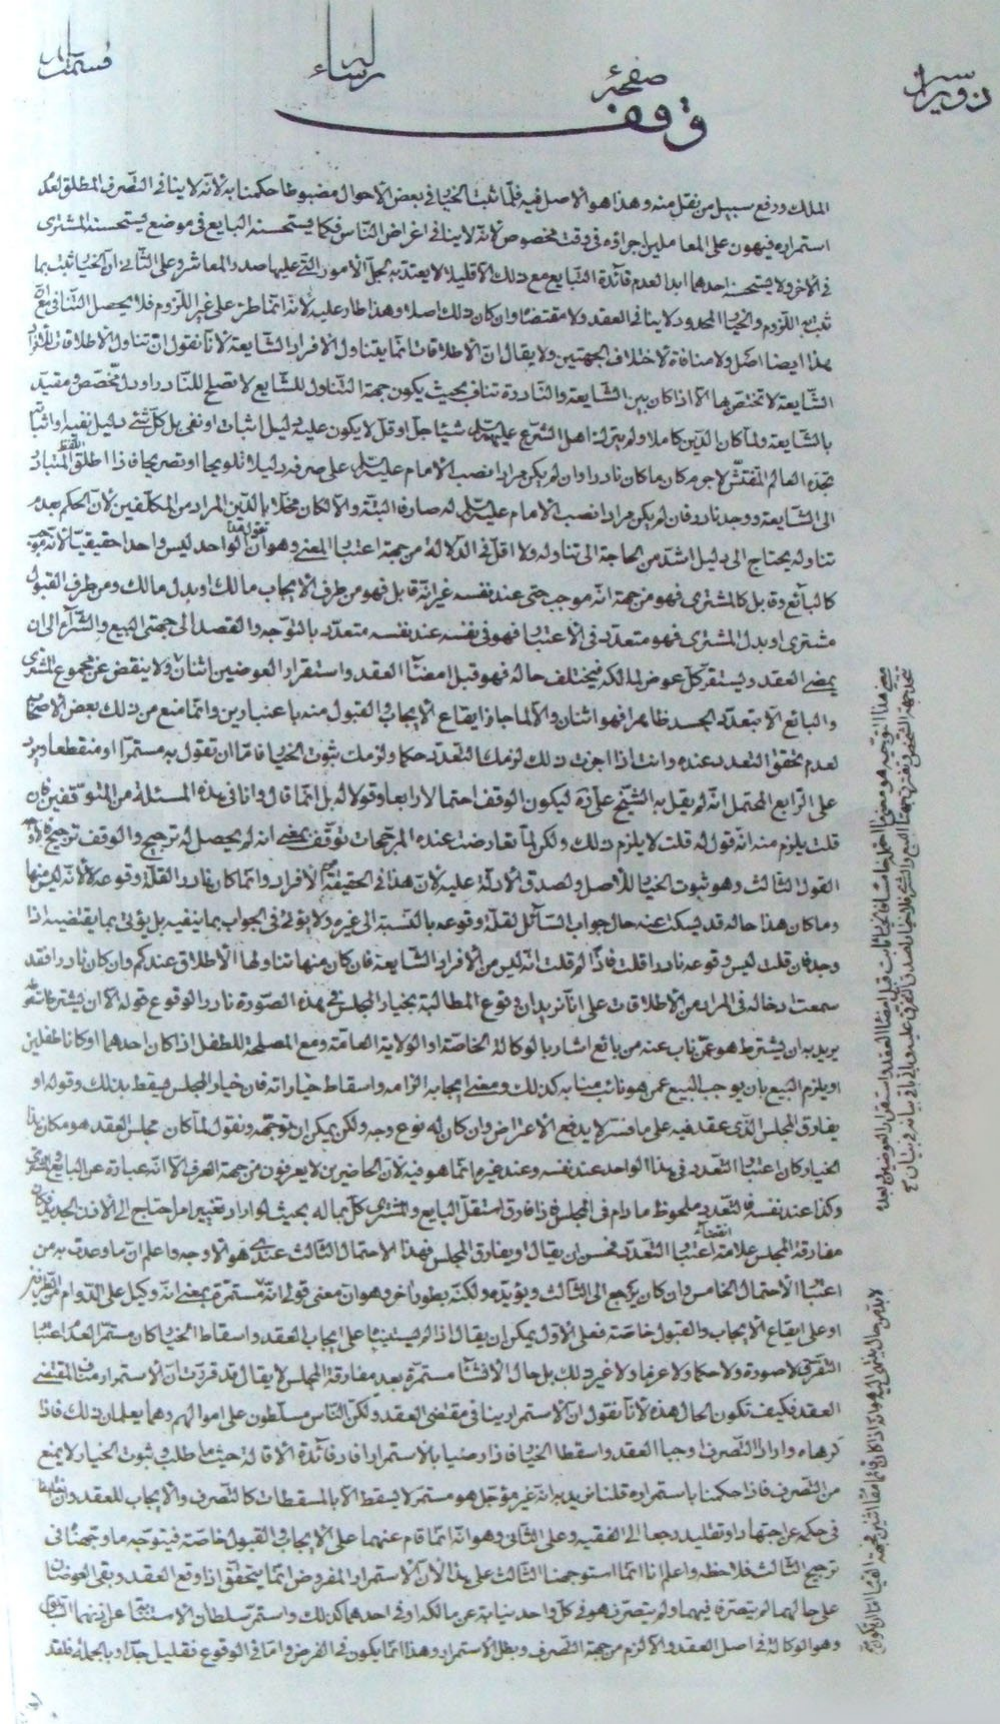 صفحهٔ
وقف
الملك ورفع سبيل من نقل منه وهذا هو الاصل فيه فلما ثبت الخيار في بعض الاحوال مضبوطا حكمنا به لانه لا ينافي التصرف المطلق لعدم
استمراره فيهون على المعاملين اجراؤه في وقت مخصوص لانه لا ينافي اغراض الناس فكما يستحسنه البايع في موضع يستحسنه المشتري
في الاخر ولا يستحسنه احدهما ابدا لعدم فائدة التبايع مع ذلك الا قليلا لا يعتد به لجل الامور التي عليها مدار المعاش وعلى الثاني ان الخيار ثبت بما
ثبت به اللزوم والخيار المحدود لا ينافي العقد ولا مقتضاه وان كان ذلك اصلا وهذا طار عليه لانه انما طرء على غير اللزوم فلا يحصل التنافي مع ان
هذا ايضا اصل ولا منافاة لاختلاف الجهتين ولا يقال ان الاطلاقات انما يتناول الافراد الشايعة لانا نقول ان تناول الاطلاقات للافراد
الشايعة لا تختص بها الا اذا كان بين الشايعة والنادرة تناف بحيث يكون جهة التناول للشايع لا تصلح للنادر او دل مخصص ومقيد
بالشايعة ولما كان الدين كاملا ولم يترك اهل الشرع عليهم السلام شيئا جل او قل لا يكون عليه دليل اثبات او نفي بل كل شئ دليل نفيه او اثباته
يجده العالم المفتش لا جرم كان ما كان نادرا وان لم يكن مرادا نصب الامام عليه السلام على صرفه دليلا تلويحا او تصريحا فاذا اطلق اللفظ المتبادر
الى الشايعة ووجد نادر فان لم يكن مرادا نصب الامام عليه السلام له صارفا البتة والا لكان مخلا بالدين المراد من المكلفين لان الحكم بعدم
تناوله يحتاج الى دليل اشد من الحاجة الى تناوله ولا اقل في الدلالة من جهة اعتبار المعنى وهو ان نقول هذا الواحد ليس واحدا حقيقيا لانه موجب
كالبائع وقابل كالمشتري فهو من جهة انه موجب حتى عند نفسه غير انه قابل فهو من طرف الايجاب مالك او بدل مالك ومن طرف القبول
مشتري او بدل المشتري فهو متعدد في الاعتبار فهو في نفسه عند نفسه متعدد بالتوجه والقصد الى جهتي البيع والشراء الى ان
يمضي العقد ويستقر كل عوض لمالكه فيختلف حاله فهو قبل امضاء العقد واستقرار العوضين اثنان ولا ينقض عن مجموع المشتري
والبائع الا بتعدد الجسد ظاهرا فهو اثنان والا لما جاز ايقاع الايجاب والقبول منه باعتبارين وانما منع من ذلك بعض الاصحاب
لعدم تحقق التعدد عنده وانت اذا اجزت ذلك لزمك التعدد حكما ولزمك ثبوت الخيار فاما ان تقول به مستمرا او منقطعا ويرد
على الرابع المحتمل انه لم يقل به الشيخ علي ره ليكون الوقف احتمالا رابعا وقولا له بل انما قال وانا في هذه المسئلة من المتوقفين فان
قلت يلزم منه انه قول له قلت لا يلزم ذلك ولكن لما تعارضت عنده المرجحات توقف بمعنى انه لم يحصل له ترجيح والوقف ترجيح
القول الثالث وهو ثبوت الخيار للاصل ولصدق الادلة عليه لان هذا في الحقيقة من الافراد وانما كان نادرا لقلة وقوعه لا لانه ليس منها
وما كان هذا حاله قد يسكت عنه حال جواب السائل لقلة وقوعه بالنسبة الى غيره ولا يؤتى في الجواب بما ينفيه بل يؤتى بما يقتضيه اذا
وجد فان قلت ليس وقوعه نادرا قلت فاذا لم قلت انه ليس من الافراد الشايعة فان كان منها تناولها الاطلاق عندكم وان كان نادرا فقد
سمعت ادخاله في المراد من الاطلاقات على انا نريد ان وقوع المطالبة بخيار المجلس في هذه الصورة نادر الوقوع قوله الا ان يشترط
يريد به ان يشترط هو عمن ناب عنه من بائع اشار بالوكالة الخاصة او الولاية العامة ومع المصلحة للطفل اذا كان احدهما او كانا طفلين
او يلزم البيع بان يوجب البيع عمن هو نائب منابه كذلك ومعنى ايجابه الزامه واسقاط خياراته فان خيار المجلس يسقط بذلك وقوله او
يفارق المجلس الذي عقد فيه على ما فسر لا يدفع الاعتراض وان كان له نوع وجه ولكن يمكن ان نوجهه ونقول لما كان مجلس العقد هو مكان هذا
الخيار كان اعتبار التعدد في هذا الواحد عند نفسه وعند غيره ما هو فيه لان الحاضرين لا يعرفون من جهة العرف الا انه عبارة عن البايع والمشتري
وكذا عند نفسه فالتعدد ملحوظ ما دام في المجلس فاذا فارق استقل البايع والمشتري كل بماله بحيث لو اراد تغيير امر احتاج الى الاذن الجديد فكان
مفارقة المجلس علامة انقضاء اعتبار التعدد فحسن ان يقال او يفارق المجلس فهذا الاحتمال الثالث عندي هو الاوجه واعلم ان ما وصف به من
اعتبار الاحتمال الخامس وان كان يرجع الى الثالث ويؤيده ولكنه بطور آخر وهو ان معنى قولي انه مستمرة بمعنى انه وكيل على الدوام من الطرفين
او على ايقاع الايجاب والقبول خاصة فعلى الاول يمكن ان يقال اذا لم يستثنيا على ايجاب العقد واسقاط الخيار كان مستمرا لعدم اعتبار
التفرق لا صورة ولا حكما ولا عرفا ولا غير ذلك بل حال الانشاء مستمرة بعد مفارقة المجلس لا يقال قد قررت ان الاستمرار مناف لمقتضى
العقد فكيف تكون الحال هذه لانا نقول ان الاستمرار ينافي مقتضى العقد ولكن الناس مسلطون على اموالهم وهما يعلمان ذلك فاذا
كرهاه وارادا التصرف اوجبا العقد واسقطا الخيار فاذا رضيا بالاستمرار افاد فائدة الاقالة حيث ما طلب وثبوت الخيار لا يمنع
من التصرف فاذا حكمنا باستمراره قلنا نريد به انه غير مؤجل هو مستمر لا يسقط الا بالمسقطات كالتصرف والايجاب للعقد وان
في حكمه عن اجتهاد او تقليد رجعا الى الفقيه وعلى الثاني وهو انه انما قام عنهما على الايجاب والقبول خاصة فيتوجه ما وجهناه في
ترجيح الثالث فلاحظه واعلم انا انما استوجهنا الثالث على هذا لان الاستمرار المفروض انما يتحقق اذا وقع العقد وبقي العوضان
على حالهما لم يتصرف فيهما ولم يتصرف هو في كل واحد نيابة عن مالكه او في احدهما كذلك واستمر سلطان الاستيفاء على انهما
وهو الوكالة في اصل العقد والا لزم من جهة التصرف وبطل الاستمرار وهذا انما يكون في الفرض واما في الوقوع فقليل جدا وبالجملة فلقد